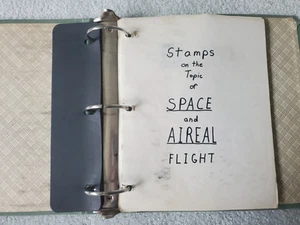 Stamps
on the
Topic
of
SPACE
and
AIREAL
FLIGHT